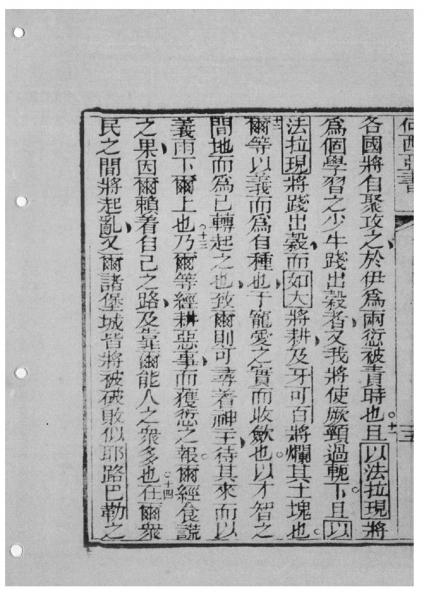 何西亞書
各國將自聚攻之於伊爲兩愆被責時也十一且以法拉現將
爲個學習之少牛踐出穀者又我將使厥頸過軛下且以
法拉現將踐出穀而如大將耕及牙可百將爛其土塊也
十二爾等以義而爲自種也于寵愛之實而收斂也以才智之
間地而爲已轉起之也致爾則可尋着神主待其來而以
義雨下爾上也十三乃爾等經耕惡事而獲愆之報爾經食謊
之果因爾賴着自己之路及靠爾能人之衆多也十四在爾衆
民之間將起亂又爾諸堡城皆將被破敗似耶路巴勒之